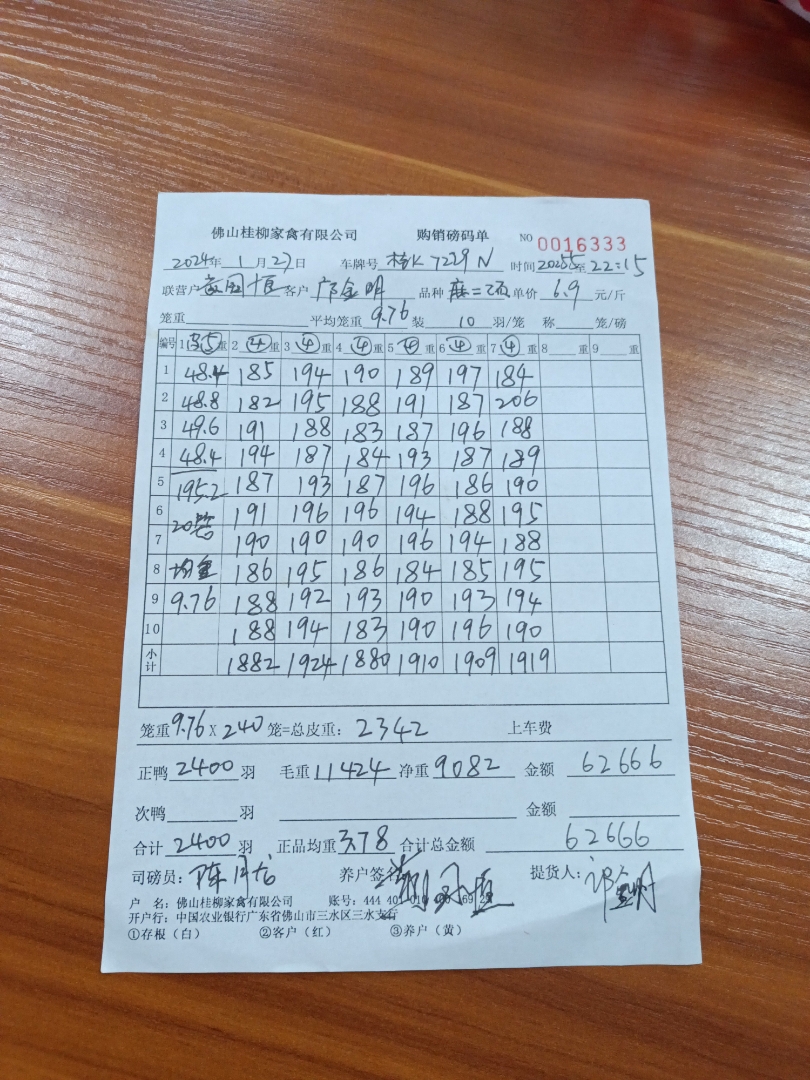 佛山桂柳家禽有限公司 购销磅码单 NO 0016333
2024年 1月27日 车牌号 桂K7229N 时间 至22:15
联营户 客户 邝金明 品种 单价 6.9 元/斤
笼重 平均笼重 9.76 装 10 羽/笼 称 笼/磅
编号 1 (35) 重 2 (4) 重 3 (4) 重 4 (4) 重 5 (4) 重 6 (4) 重 7 (4) 重 8 重 9 重
1 48.4 185 194 190 189 197 184
2 48.8 182 195 188 191 187 206
3 49.6 191 188 183 187 196 188
4 48.4 194 187 184 193 187 189
5 195.2 187 193 187 196 186 190
6 20笼 191 196 196 194 188 195
7 190 190 190 196 194 188
8 均重 186 195 186 184 185 195
9 9.76 188 192 193 190 193 194
10 188 194 183 190 196 190
小计 1882 1924 1880 1910 1909 1919
笼重 9.76 X 240 笼=总皮重: 2342 上车费
正鸭 2400 羽 毛重 11424 净重 9082 金额 62666
次鸭 羽 金额
合计 2400 羽 正品均重 3.78 合计总金额 62666
司磅员: 陈 养户签名 提货人:
户 名: 佛山桂柳家禽有限公司 账号: 444 401 010
开户行: 中国农业银行广东省佛山市三水区三水支行
①存根（白） ②客户（红） ③养户（黄）